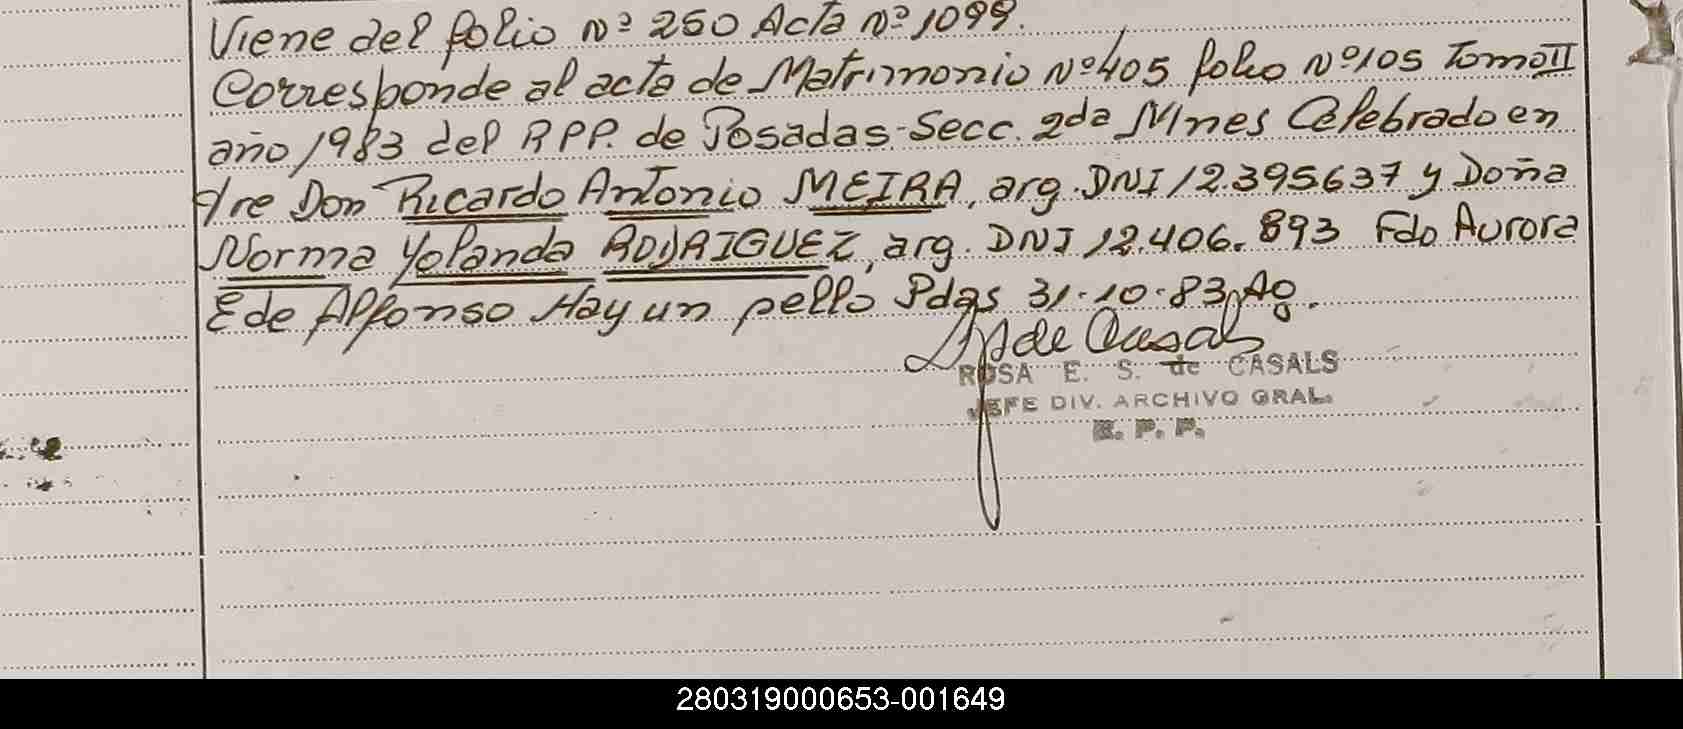 Viene del folio Nº 250 Acta Nº 1099.
Corresponde al acta de Matrimonio Nº 405 folio Nº 105 Tomo II
año 1983 del RPP. de Posadas-Secc. 2da Mnes Celebrado en
tre Don Ricardo Antonio MEIRA, arg. DNI 12.395637 y Doña
Norma Yolanda RODRIGUEZ, arg. DNI 12.406.893 Fdo Aurora
E de Alfonso Hay un sello Pdas 31.10.83
ROSA E. S. de CASALS
JEFE DIV. ARCHIVO GRAL.
R. P. P.
280319000653-001649